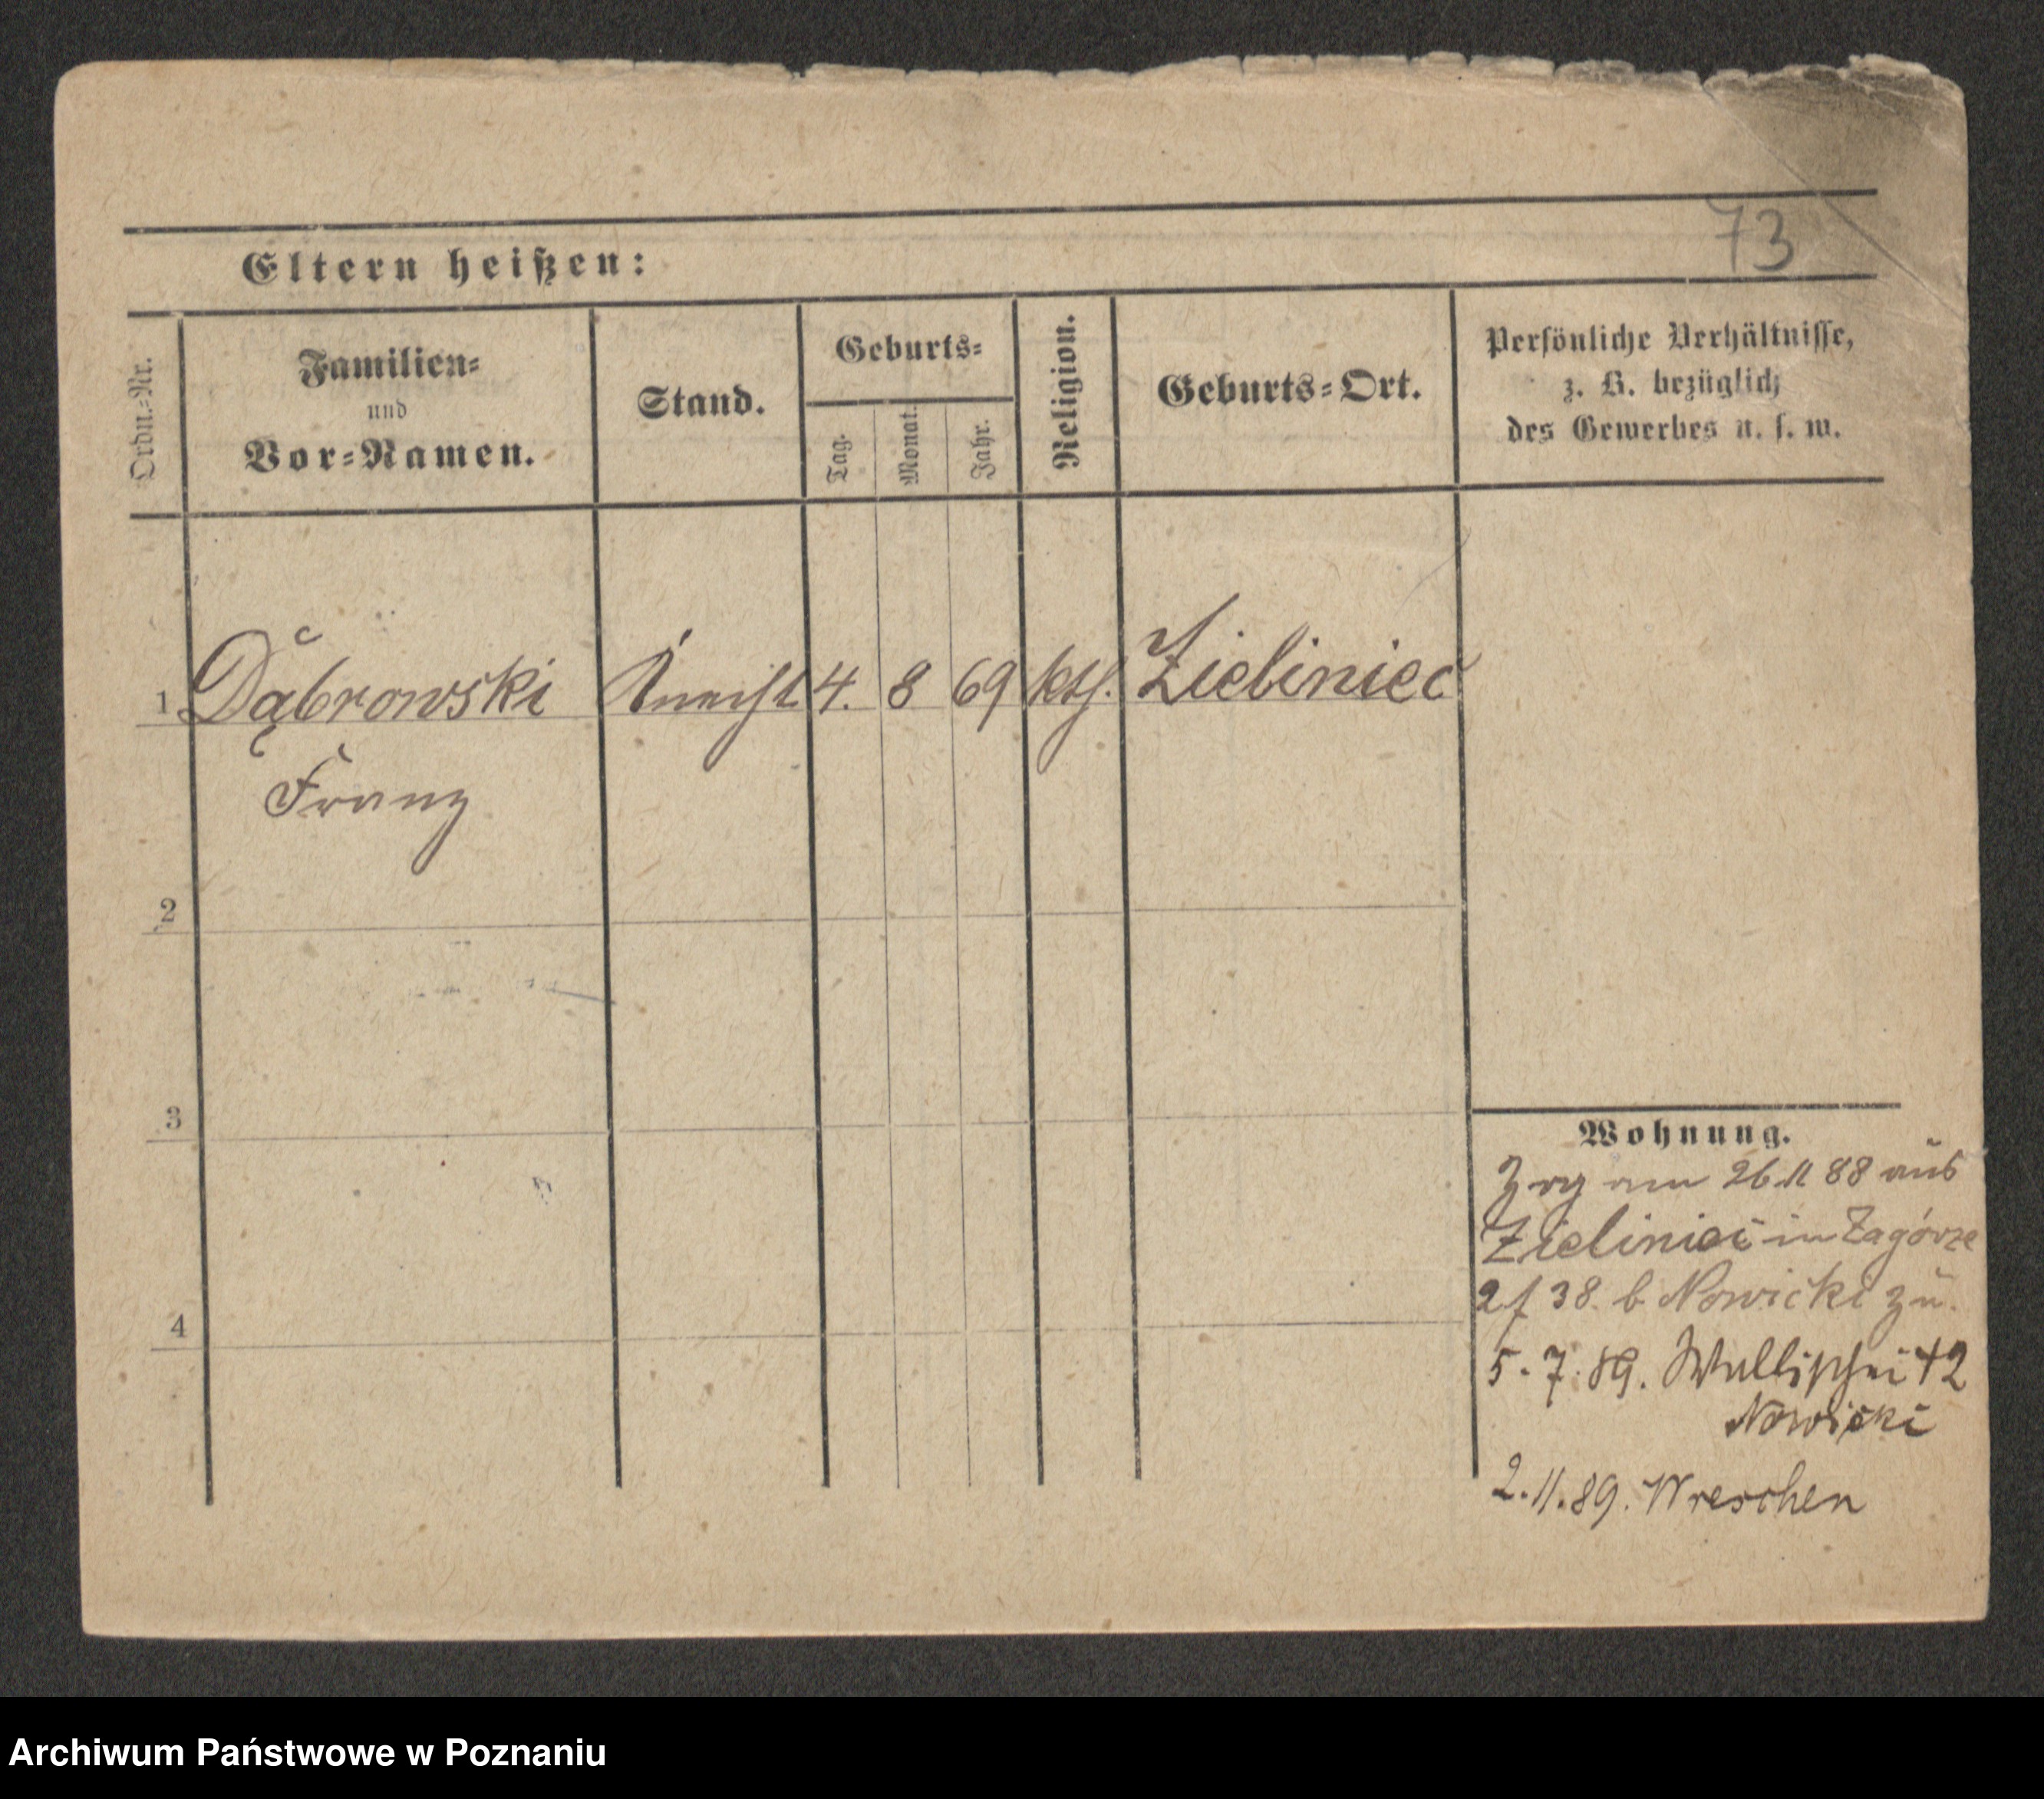 73
Eltern heißen:
Ordn.-Nr.
Familien-
und
Vor-Namen.
Stand.
Geburts-
Tag.
Monat.
Jahr.
Religion.
Geburts-Ort.
Persönliche Verhältnisse,
z. B. bezüglich
des Gewerbes u. s. w.
1 Dąbrowski Knecht 4. 8 69 kth. Zieliniec
Franz
2
3
4
Wohnung.
Zog am 26 11 88 aus
Zieliniec in Zagórze
2/38. b Nowicki zu.
5.7.89. Wallischei 42
Nowicki
2.11.89. Wreschen
Archiwum Państwowe w Poznaniu